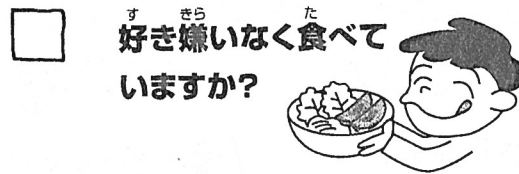 好き嫌いなく食べて
いますか?